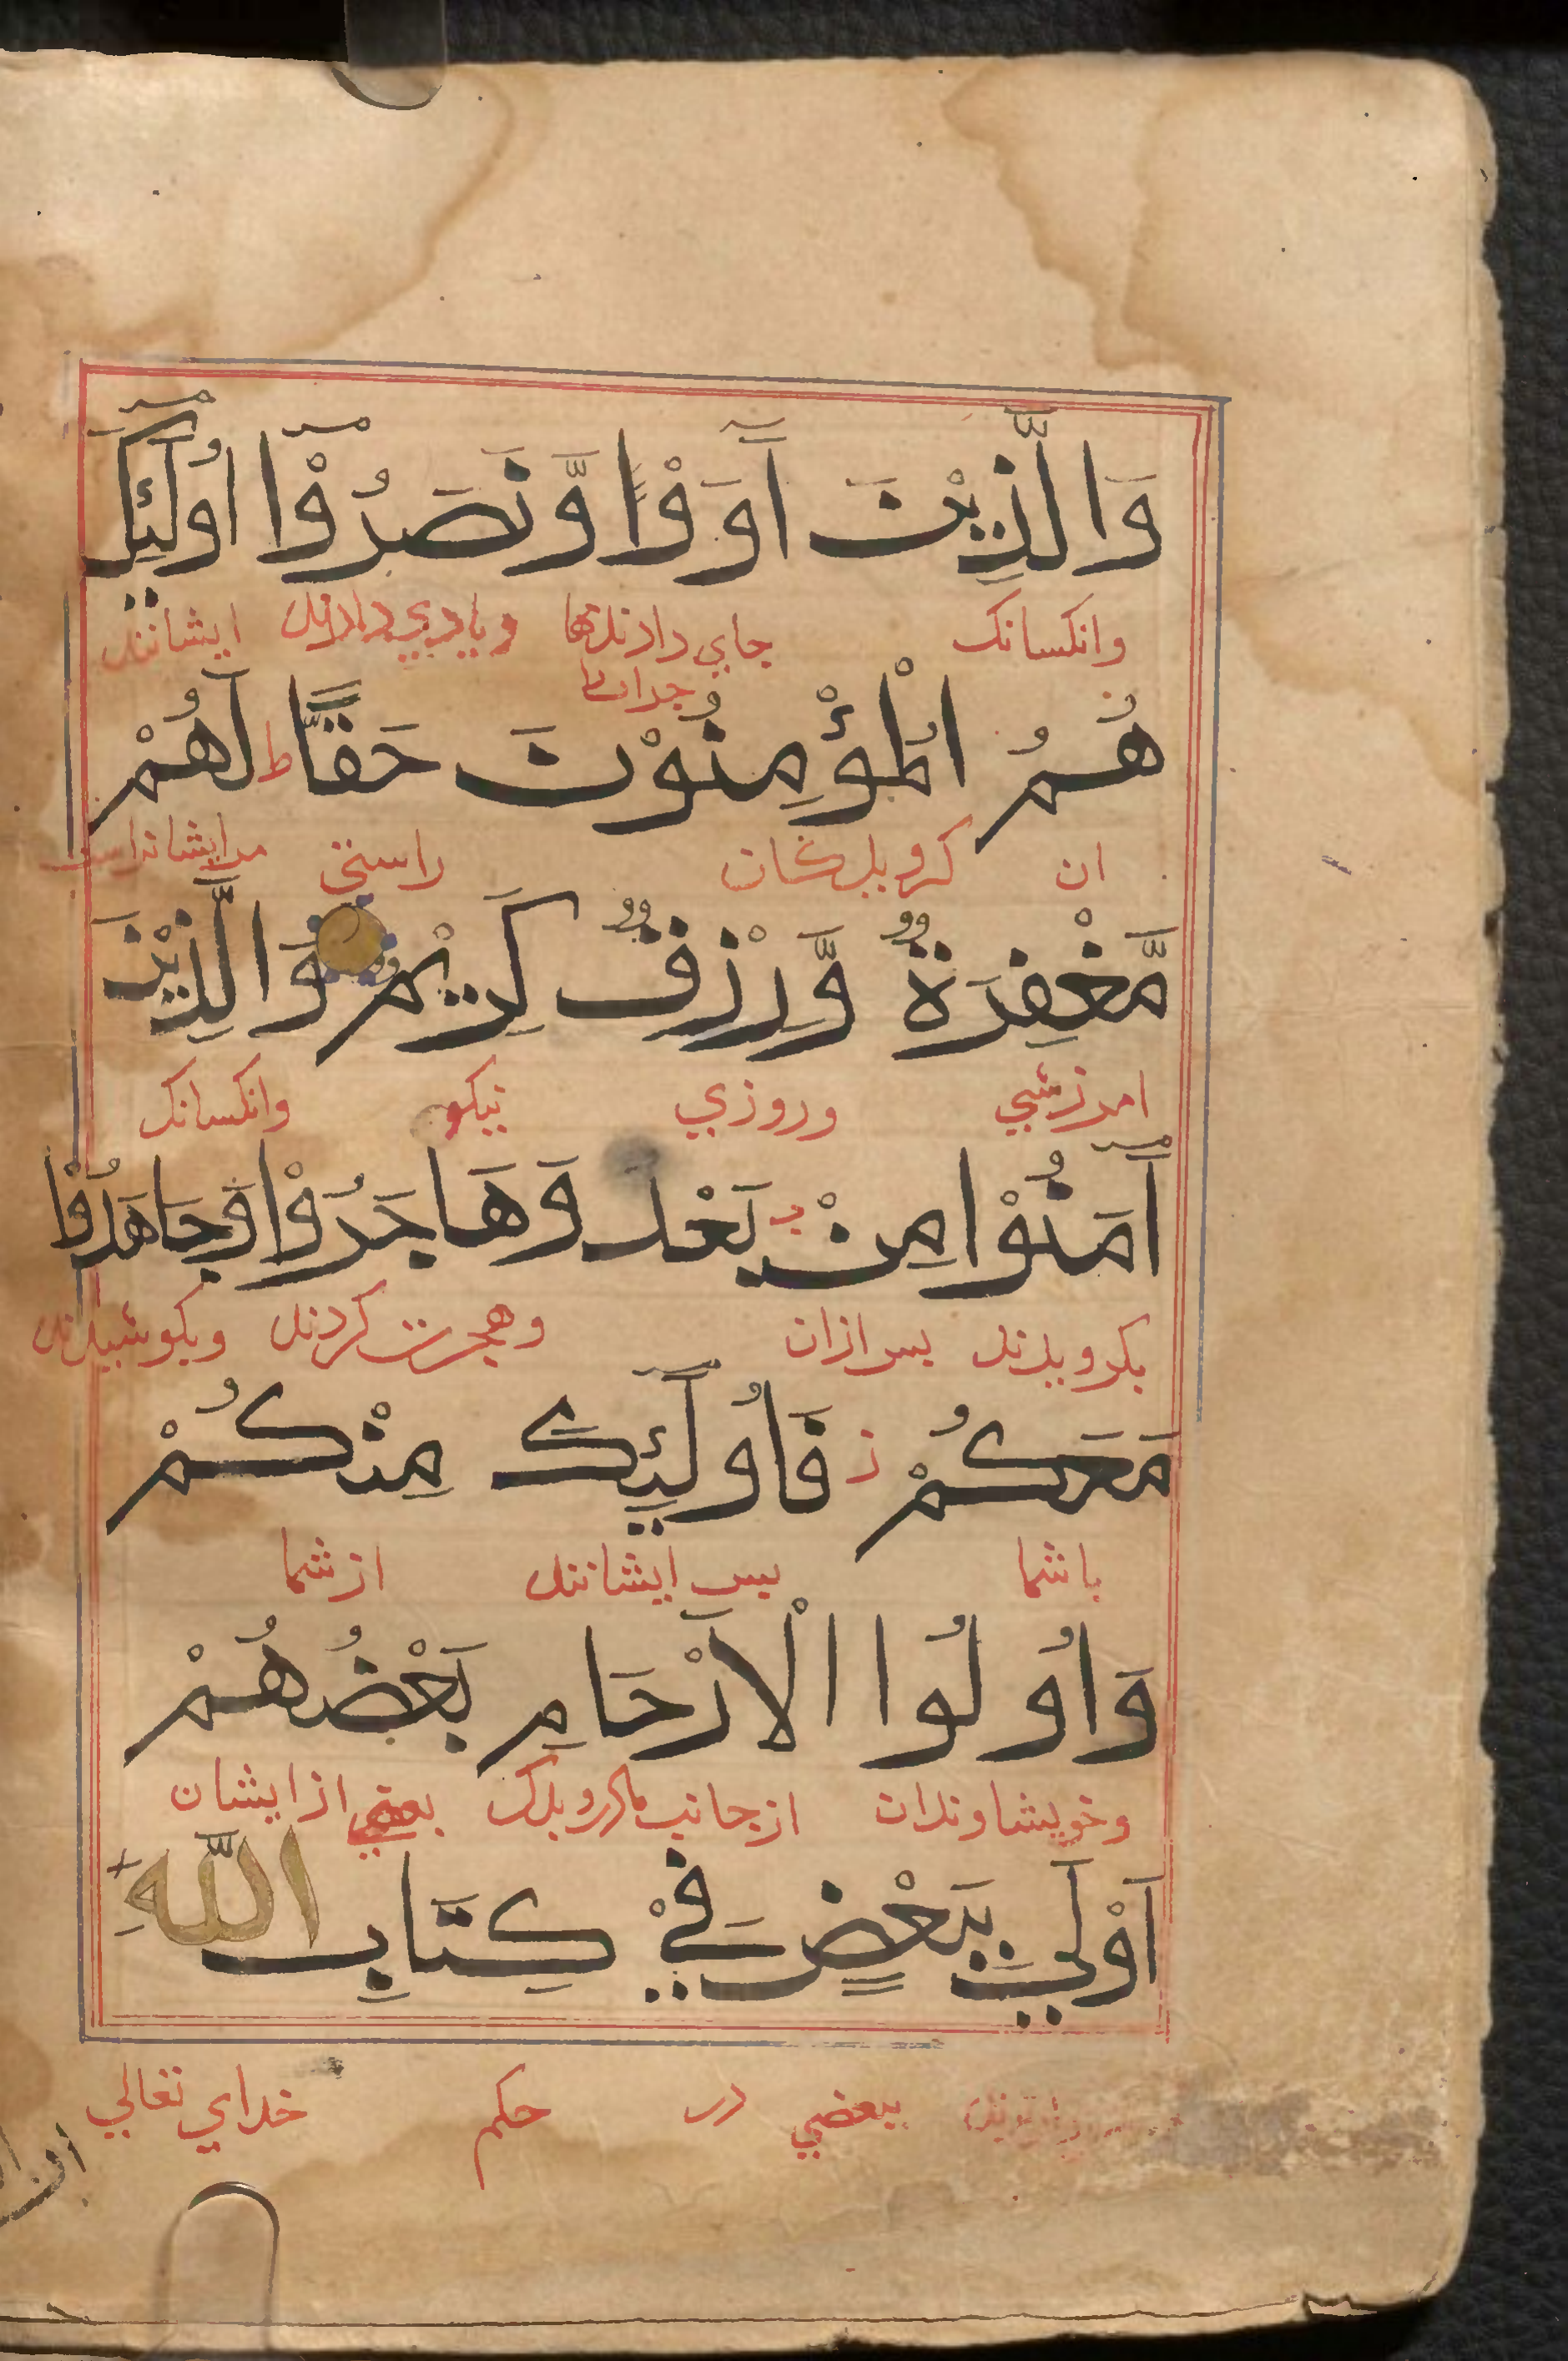 وَالَّذِيْنَ آوَوْا وَّنَصَرُوْا اُولٰٓئِكَ
وانكسانك جاي دادندها وياري دادند ايشانند
هُمُ الْمُؤْمِنُوْنَ حَقًّا ط لَهُمْ
ان كرويدكان راستي مرايشانراست
مَّغْفِرَةٌ وَّرِزْقٌ كَرِيْمٌ وَالَّذِيْنَ
امرزشي وروزي نيكو وانكسانك
اٰمَنُوْا مِنْ بَعْدُ وَهَاجَرُوْا وَجَاهَدُوْا
بكرويدند پس ازان وهجرت كردند وبكوشيدند
مَعَكُمْ ز فَاُولٰٓئِكَ مِنْكُمْ
باشما پس ايشانند ازشما
وَاُولُوا الْاَرْحَامِ بَعْضُهُمْ
وخويشاوندان ازجانب بعضي ازايشان
اَوْلٰى بِبَعْضٍ فِيْ كِتَابِ اللّٰهِ
ببعضي در حكم خداي تعالي